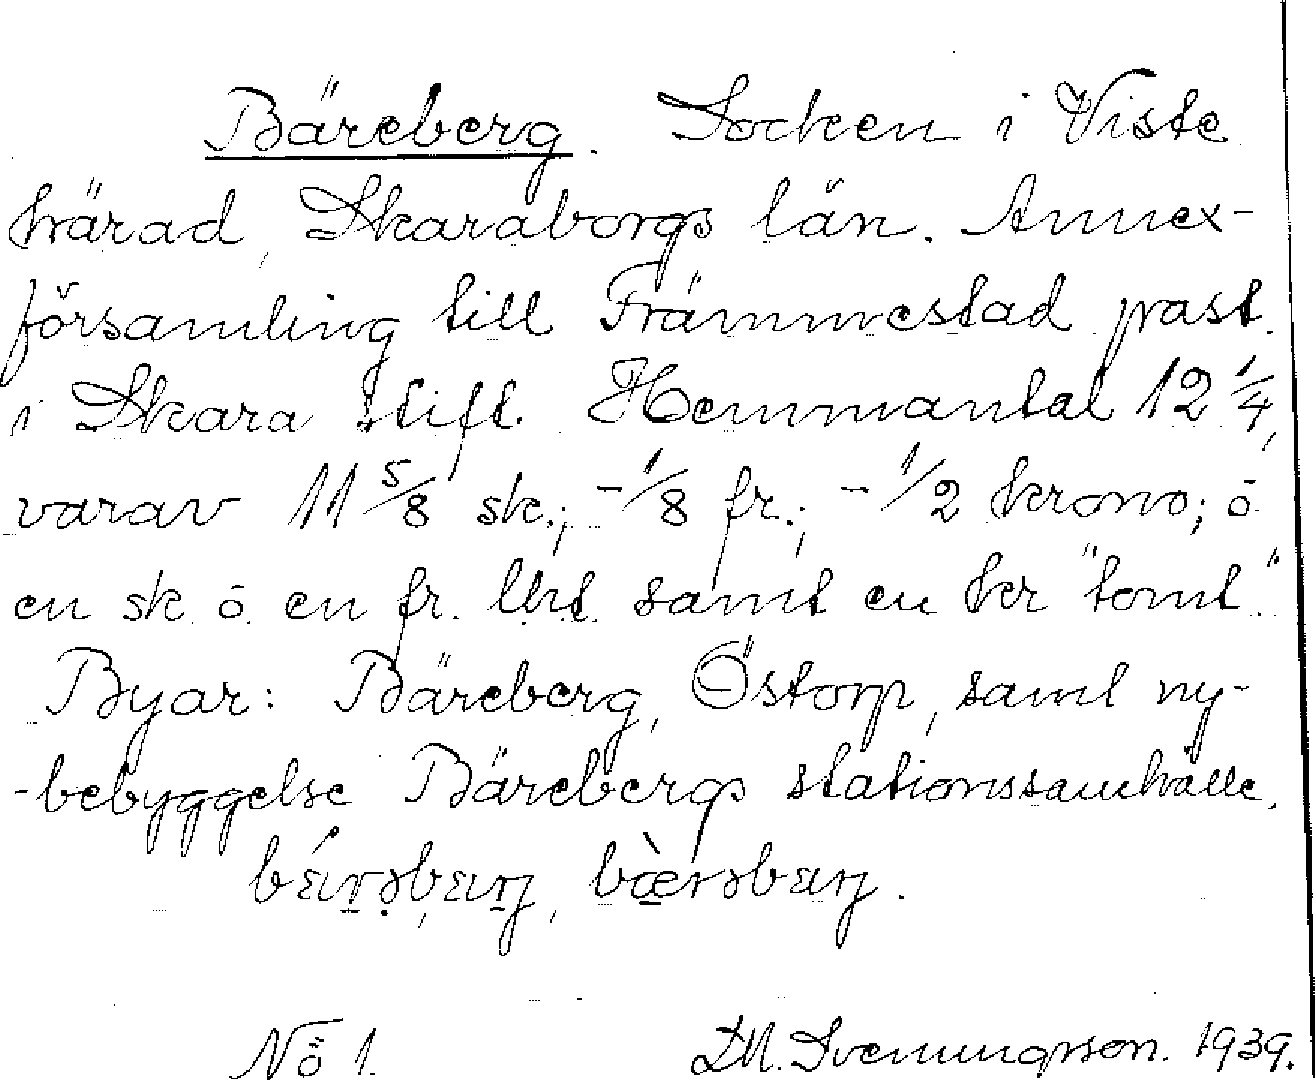 Bäreberg. Socken i Viste
härad, Skaraborgs län. Annex-
församling till Främmestad past.
i Skara stift. Hemmantal 12 1/4,
varav 11 5/8 sk.; -1/8 fr.; -1/2 krono; o
en sk. o. en fr. samt en kr "tomt".
Byar: Bäreberg, Östorp, samt ny-
-bebyggelse Bärebergs stationssamhälle.
No 1. D.M. Svenungsson. 1939.